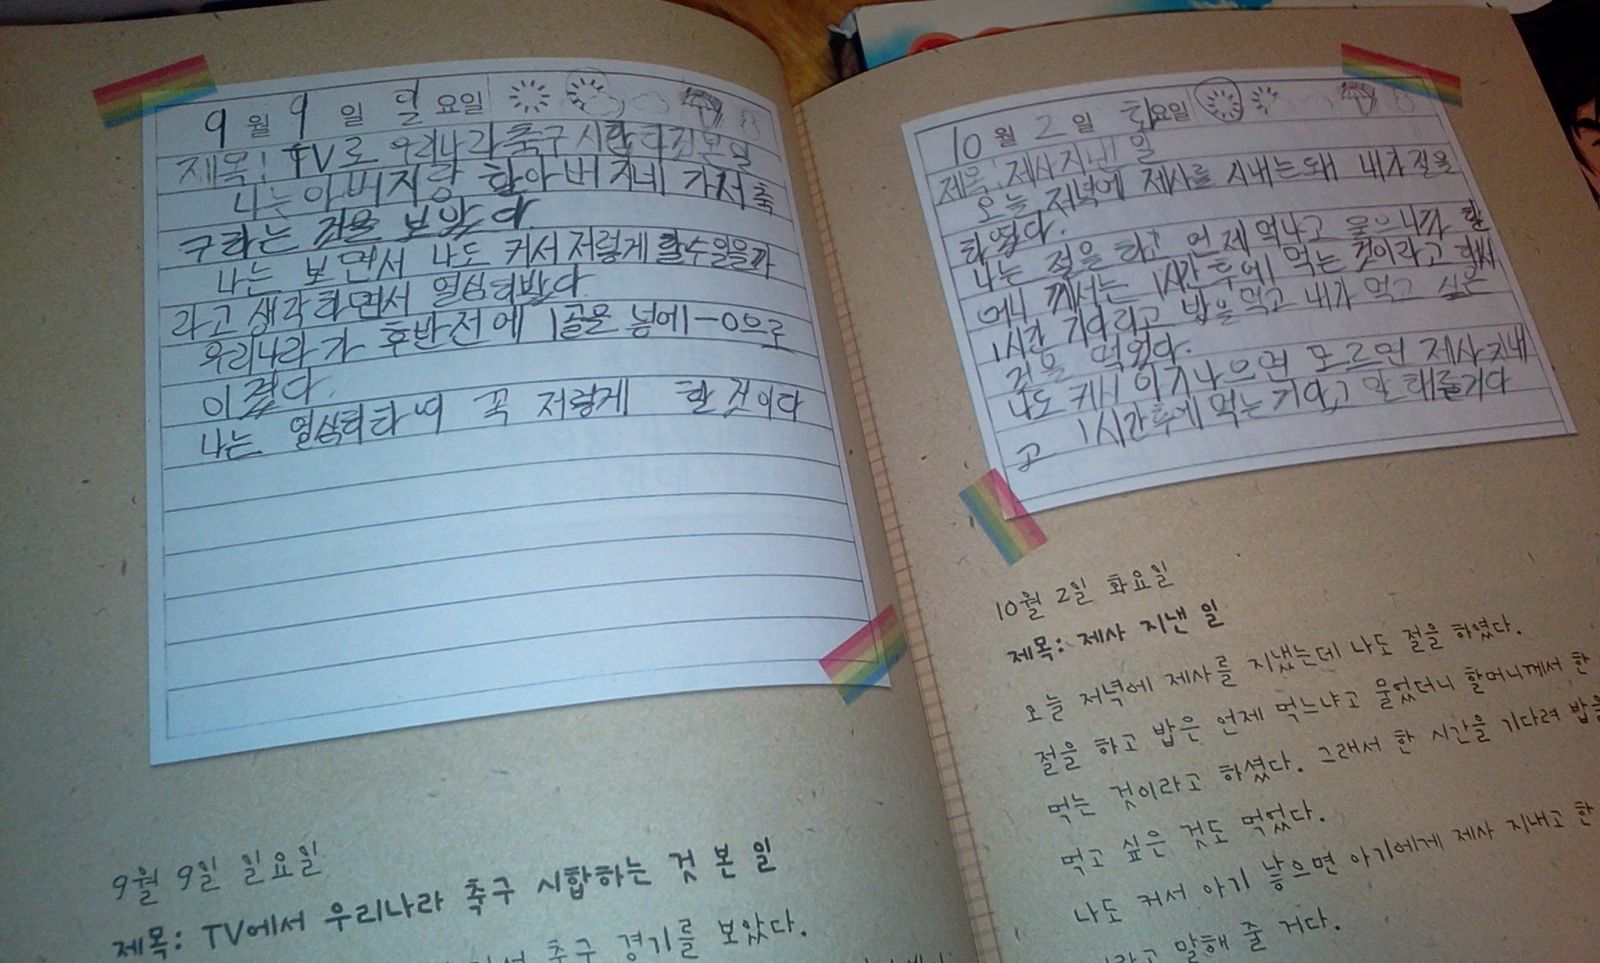 9 월 9 일 일 요일
제목! TV로 우리나라 축구 시합
나는 아버지랑 할아버지네 가서 축
구하는 것을 보았다.
나는 보면서 나도 커서 저렇게 할수있을까
라고 생각하면서 열심히 봤다.
우리나라가 후반전에 1골을 넣 1-0으로
이겼다.
나는 열심히하여 꼭 저렇게 할것이다
9월 9일 일요일
제목: TV에서 우리나라 축구 시합하는 것 본 일
축구 경기를 보았다.
10 월 2 일 화요일
제목: 제사지낸 일
오늘 저녁에 제사를 지내는돼 내가 절을
하였다.
나는 절을 하고 언제 먹냐고 물으니까 할
머니 께서는 1시간후에 먹는 것이라고 해서
1시간 기다리고 밥을 먹고 내가 먹고 싶은
것을 먹었다.
나도 커서 아기 나으면 모르면 제사지내
고 1시간후에 먹는거라고 말해줄거다
10월 2일 화요일
제목: 제사 지낸 일
오늘 저녁에 제사를 지냈는데 나도 절을 하였다.
절을 하고 밥은 언제 먹느냐고 물었더니 할머니께서 한
먹는 것이라고 하셨다. 그래서 한 시간을 기다려 밥을
먹고 싶은 것도 먹었다.
나도 커서 아기 낳으면 아기에게 제사 지내고 한
라고 말해 줄 거다.